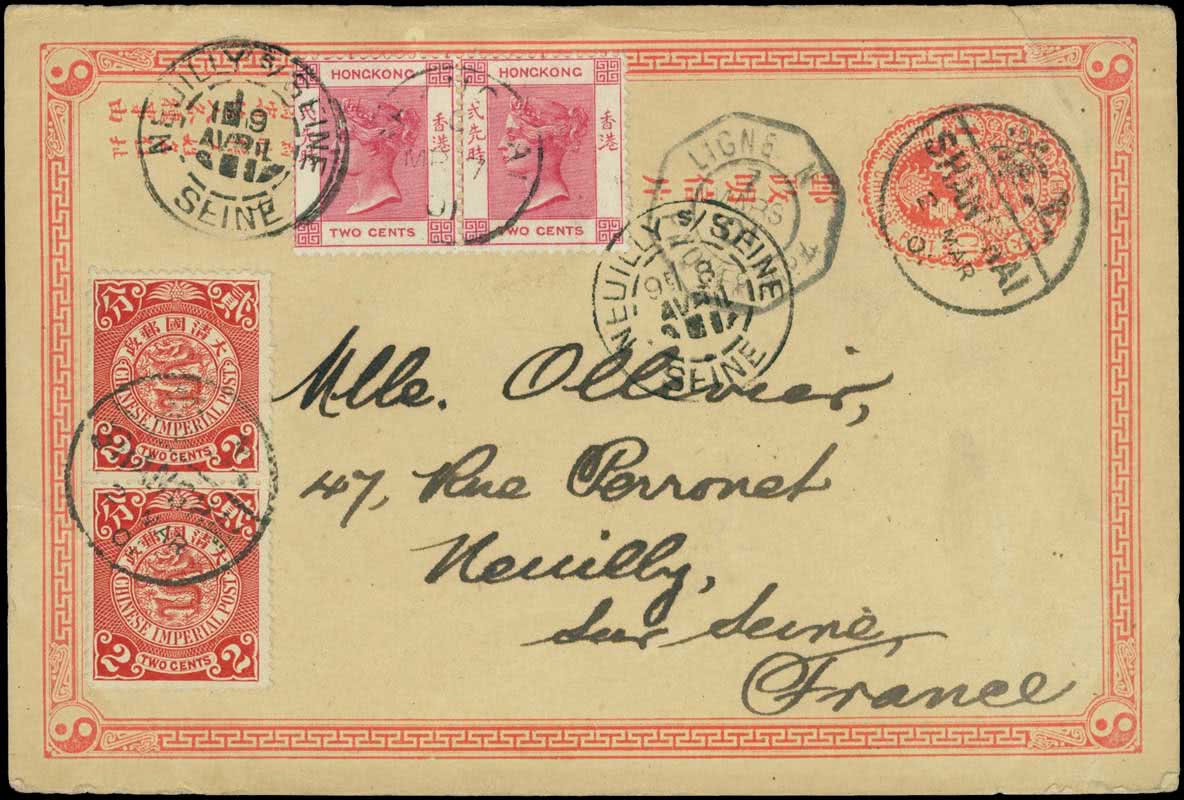 NEUILLY S/SEINE
AVRIL
SEINE
HONGKONG
香港
TWO CENTS
HONGKONG
貳先時
香港
TWO CENTS
MR
01
LIGNE N
7
MARS
SHANGHAI
2
MAR
01
NEUILLY S/SEINE
AVRIL
SEINE
分 貳
大清國郵政
CHINESE IMPERIAL POST
2 TWO CENTS 2
分 貳
大清國郵政
CHINESE IMPERIAL POST
2 TWO CENTS 2
Mlle. Ollivier,
47, Rue Perronet
Neuilly,
Sur Seine,
France